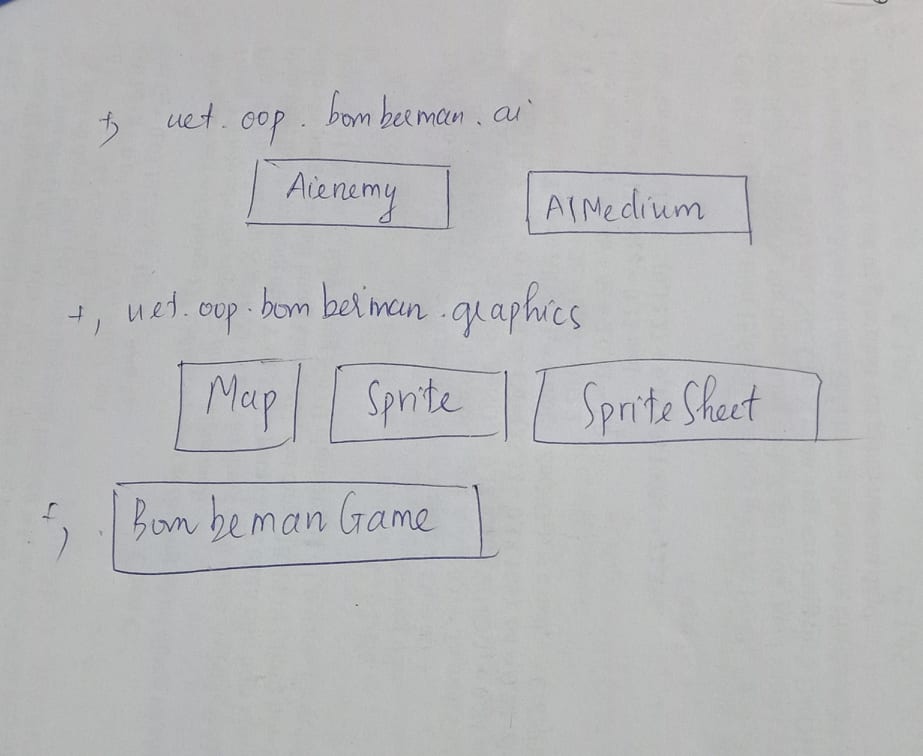 +, uet.oop.bomberman.ai
Aienemy AIMedium
+, uet.oop.bomberman.graphics
Map Sprite SpriteSheet
+, BombemanGame